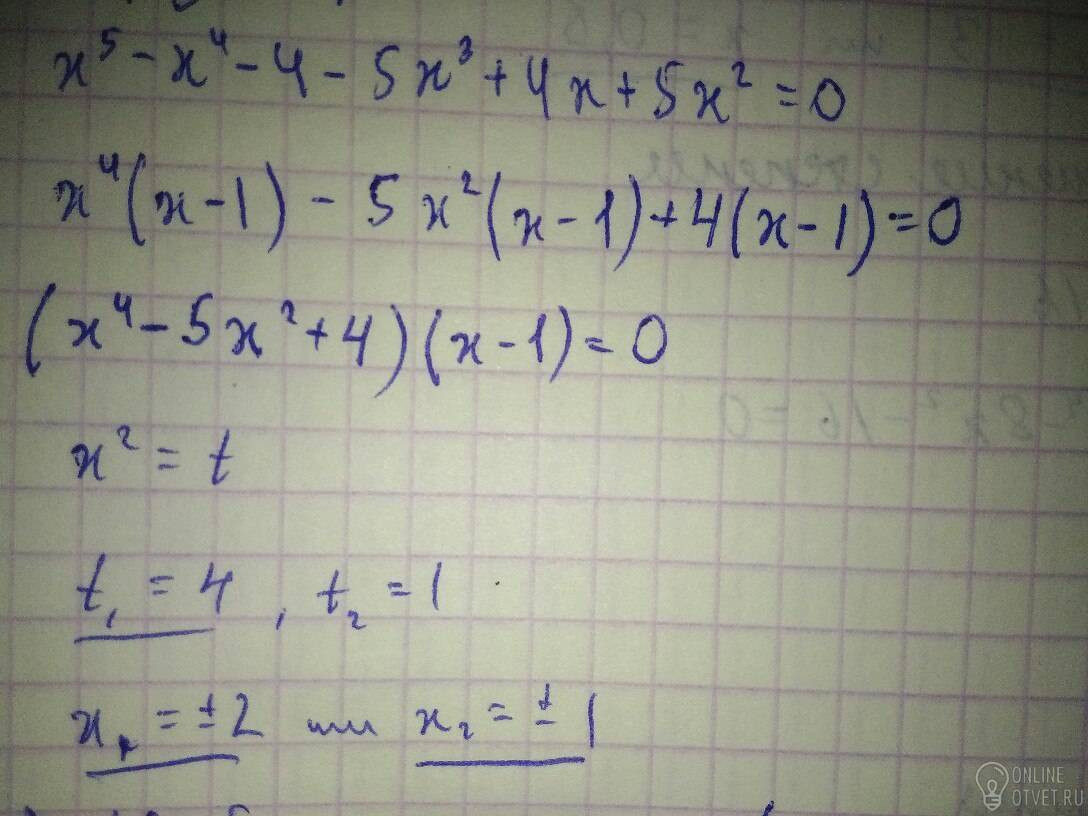 x⁵ - x⁴ - 4 - 5x³ + 4x + 5x² = 0
x⁴(x-1) - 5x²(x-1) + 4(x-1) = 0
(x⁴ - 5x² + 4)(x-1) = 0
x² = t
t₁ = 4, t₂ = 1
x₁ = ±2 или x₂ = ±1
ONLINE
OTVET.RU